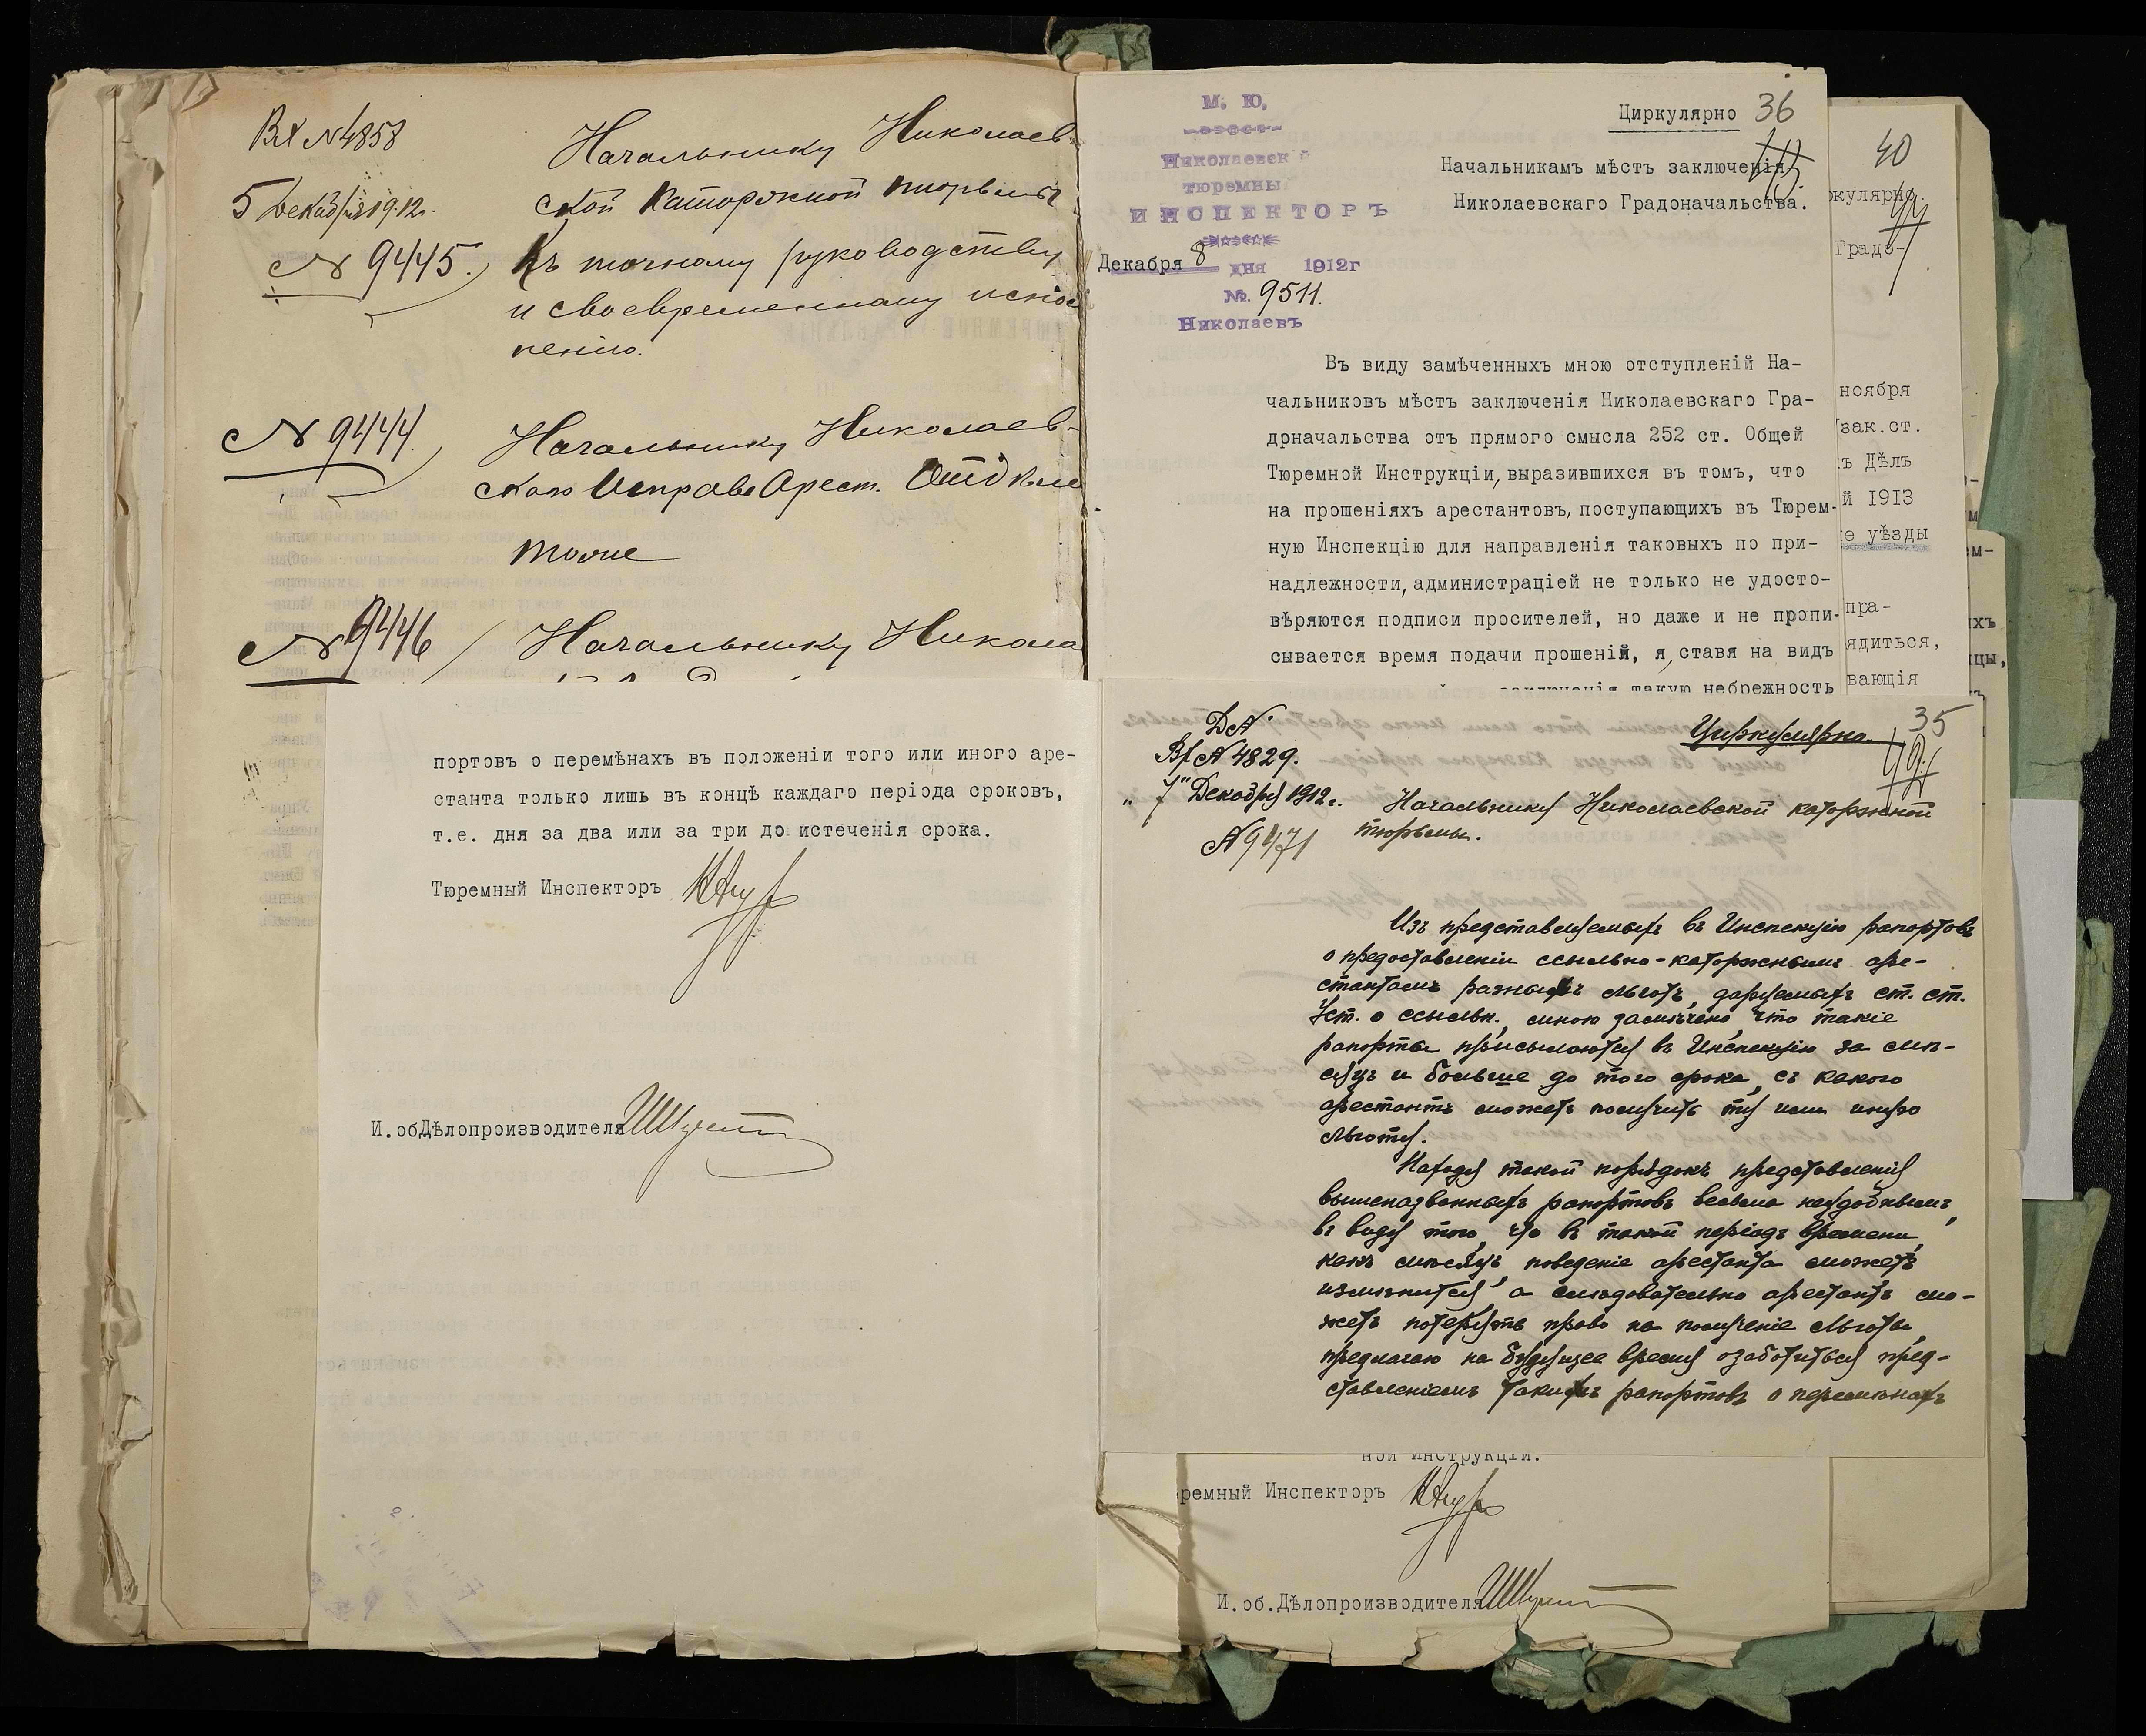 Вх №4858
5 Декабря 1912г.
№ 9445.
Начальнику Николаев-
ской Каторжной тюрьмы
Къ точному руководству
и своевременному испол
ненію.
№ 9444.
Начальнику Николаев-
скаго Исправ. Арест. Отдѣле
тоже
№ 9446
Начальнику Никола
портовъ о перемѣнахъ въ положеніи того или иного аре-
станта только лишь въ концѣ каждаго періода сроковъ,
т.е. дня за два или за три до истеченія срока.
Тюремный Инспекторъ
И.об.Дѣлопроизводителя
М. Ю.
Николаевск
тюремны
ИНСПЕКТОРЪ
Декабря 8 дня 1912г
№. 9511.
Николаевъ
Циркулярно 36
Начальникамъ мѣстъ заключенія
Николаевскаго Градоначальства.
Въ виду замѣченныхъ мною отступленій На-
чальниковъ мѣстъ заключенія Николаевскаго Гра-
доначальства отъ прямого смысла 252 ст. Общей
Тюремной Инструкціи, выразившихся въ томъ, что
на прошеніяхъ арестантовъ, поступающихъ въ Тюрем-
ную Инспекцію для направленія таковыхъ по при-
надлежности, администраціей не только не удосто-
вѣряются подписи просителей, но даже и не пропи-
сывается время подачи прошеній, я, ставя на видъ
заключенія такую небрежность
40
44
ркулярно.
Градо-
ноября
зак.ст.
ъ Дѣлъ
й 1913
е уѣзды
пра-
ядиться,
вающія
35
Циркулярно.
Д №
Вх № 4829.
"7" Декабря 1912г.
№ 9471
Начальнику Николаевской каторжной
тюрьмы.
Изъ представляемыхъ въ Инспекцію рапортовъ
о предоставленіи ссыльно-каторжнымъ аре-
стантамъ разныхъ льготъ, даруемыхъ ст. ст.
Уст. о ссыльн., мною замѣчено, что такіе
рапорты присылаются въ Инспекцію за мѣ-
сяцъ и больше до того срока, съ какого
арестантъ можетъ получить ту или иную
льготу.
Находя такой порядокъ представленія
вышеназванныхъ рапортовъ весьма неудобнымъ,
въ виду того, что въ такой періодъ времени,
какъ мѣсяцъ, поведеніе арестанта можетъ
измѣниться, а слѣдовательно арестантъ мо-
жетъ потерять право на полученіе льготы,
предлагаю на будущее время озаботиться пред-
ставленіемъ такихъ рапортовъ о перемѣнахъ
ной Инструкціи.
ремный Инспекторъ
И.об.Дѣлопроизводителя